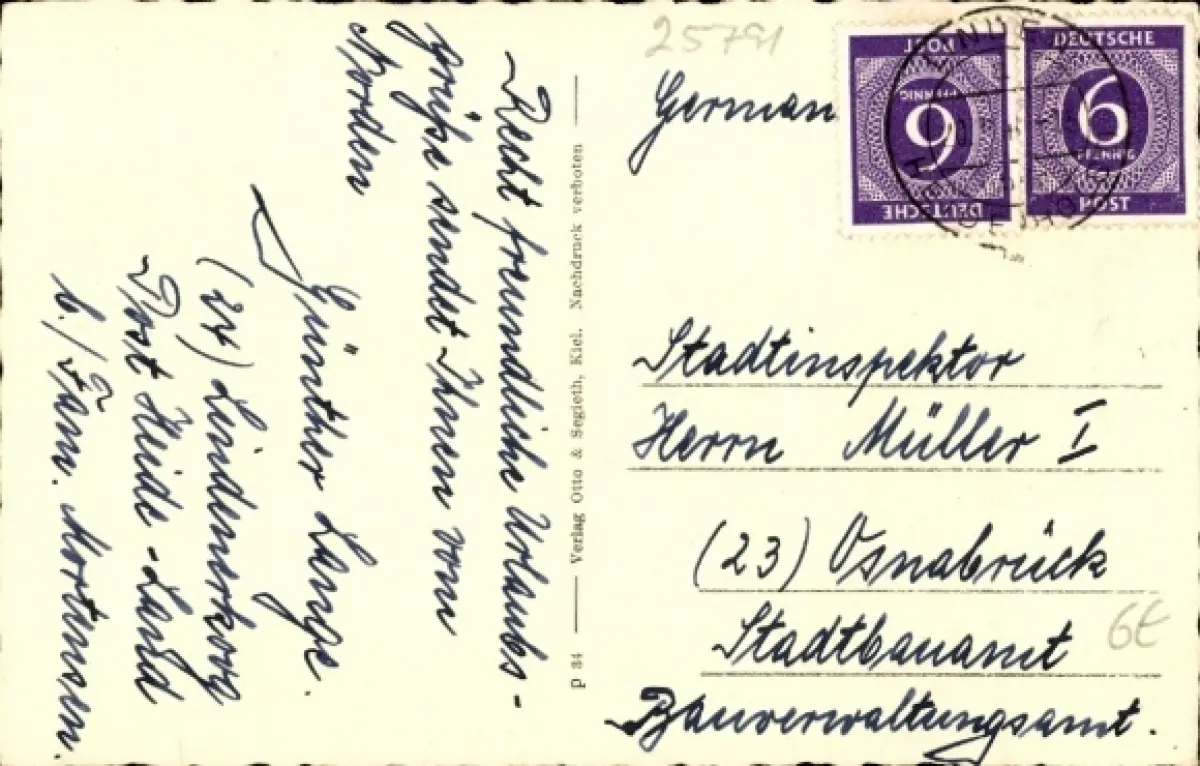 25791
Germany
DEUTSCHE
6
PFENNIG
POST
DEUTSCHE
6
PFENNIG
POST
Recht freundliche Urlaubs-
grüße sendet Ihnen vom
Norden
Günther Lange.
(24) Lindenerkoog
Post Heide-Land
b./Fam. Martinsen.
P 84 — Verlag Otto & Segieth, Kiel. Nachdruck verboten —
Stadtinspektor
Herrn Müller I
(23) Osnabrück
Stadtbauamt
Bauverwaltungsamt.
6€